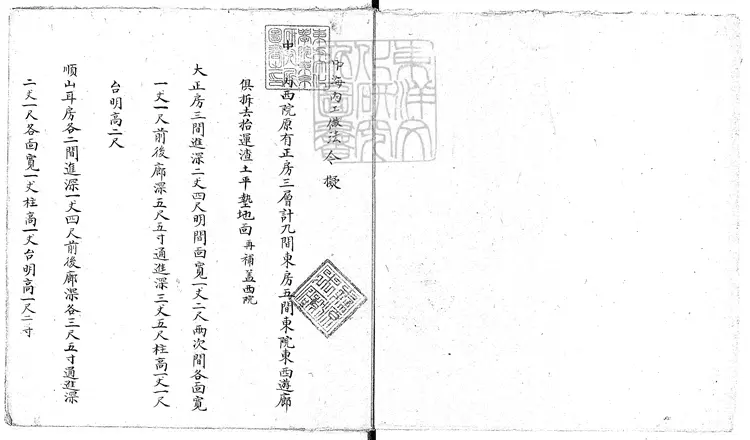 中海內工做法今擬
中
內西院原有正房三層計九間東房五間東院東西遊廊
俱拆去抬運渣土平墊地面再補蓋西院
大正房三間進深二丈四尺明間面寬一丈二尺兩次間各面寬
一丈一尺前後廊深五尺五寸通進深三丈五尺柱高一丈一尺
台明高二尺
順山耳房各二間進深一丈四尺前後廊深各三尺五寸通進深
二丈一尺各面寬一丈柱高一丈台明高一尺二寸